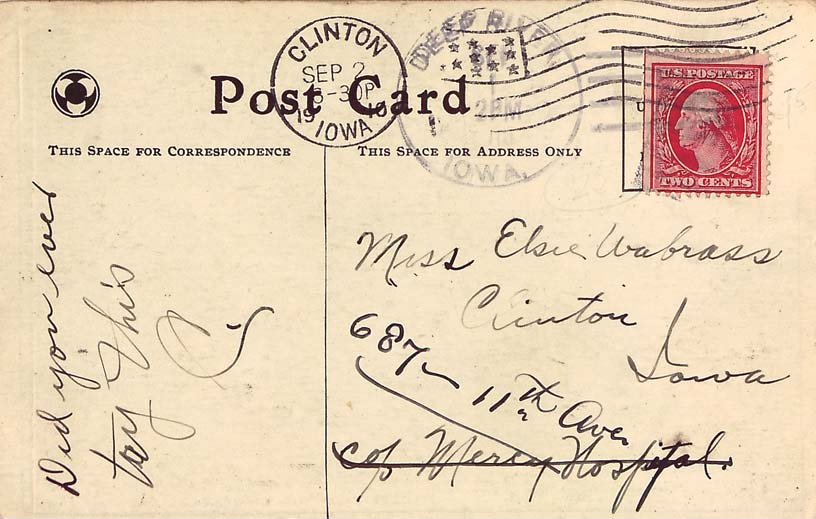 Post Card
THIS SPACE FOR CORRESPONDENCE
THIS SPACE FOR ADDRESS ONLY
CLINTON
SEP 2
-30P
19 10
IOWA
DEEP RIVER
2PM
IOWA.
U.S. POSTAGE
TWO CENTS
Did you ever
tay this
Miss Elsie Wabrass
Clinton
Iowa
687
11th Ave
c/o Mercy Hospital.